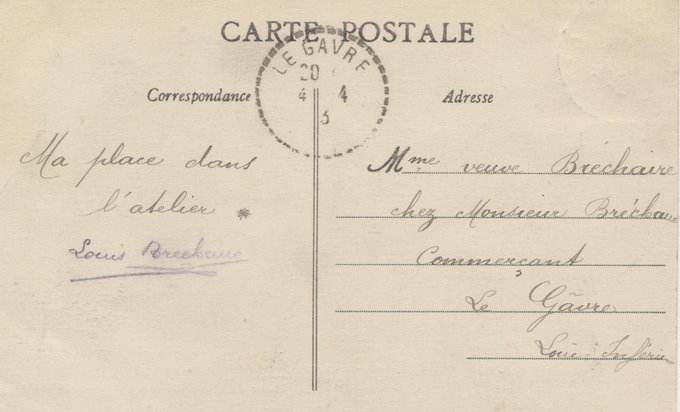 CARTE POSTALE
LE GAVRE
20
4 4
3
Correspondance
Adresse
Ma place dans
l'atelier *
Louis Brechaire
Mme veuve Bréchaire
chez Monsieur Bréchaire
Commerçant
Le Gâvre
Loire Inférie